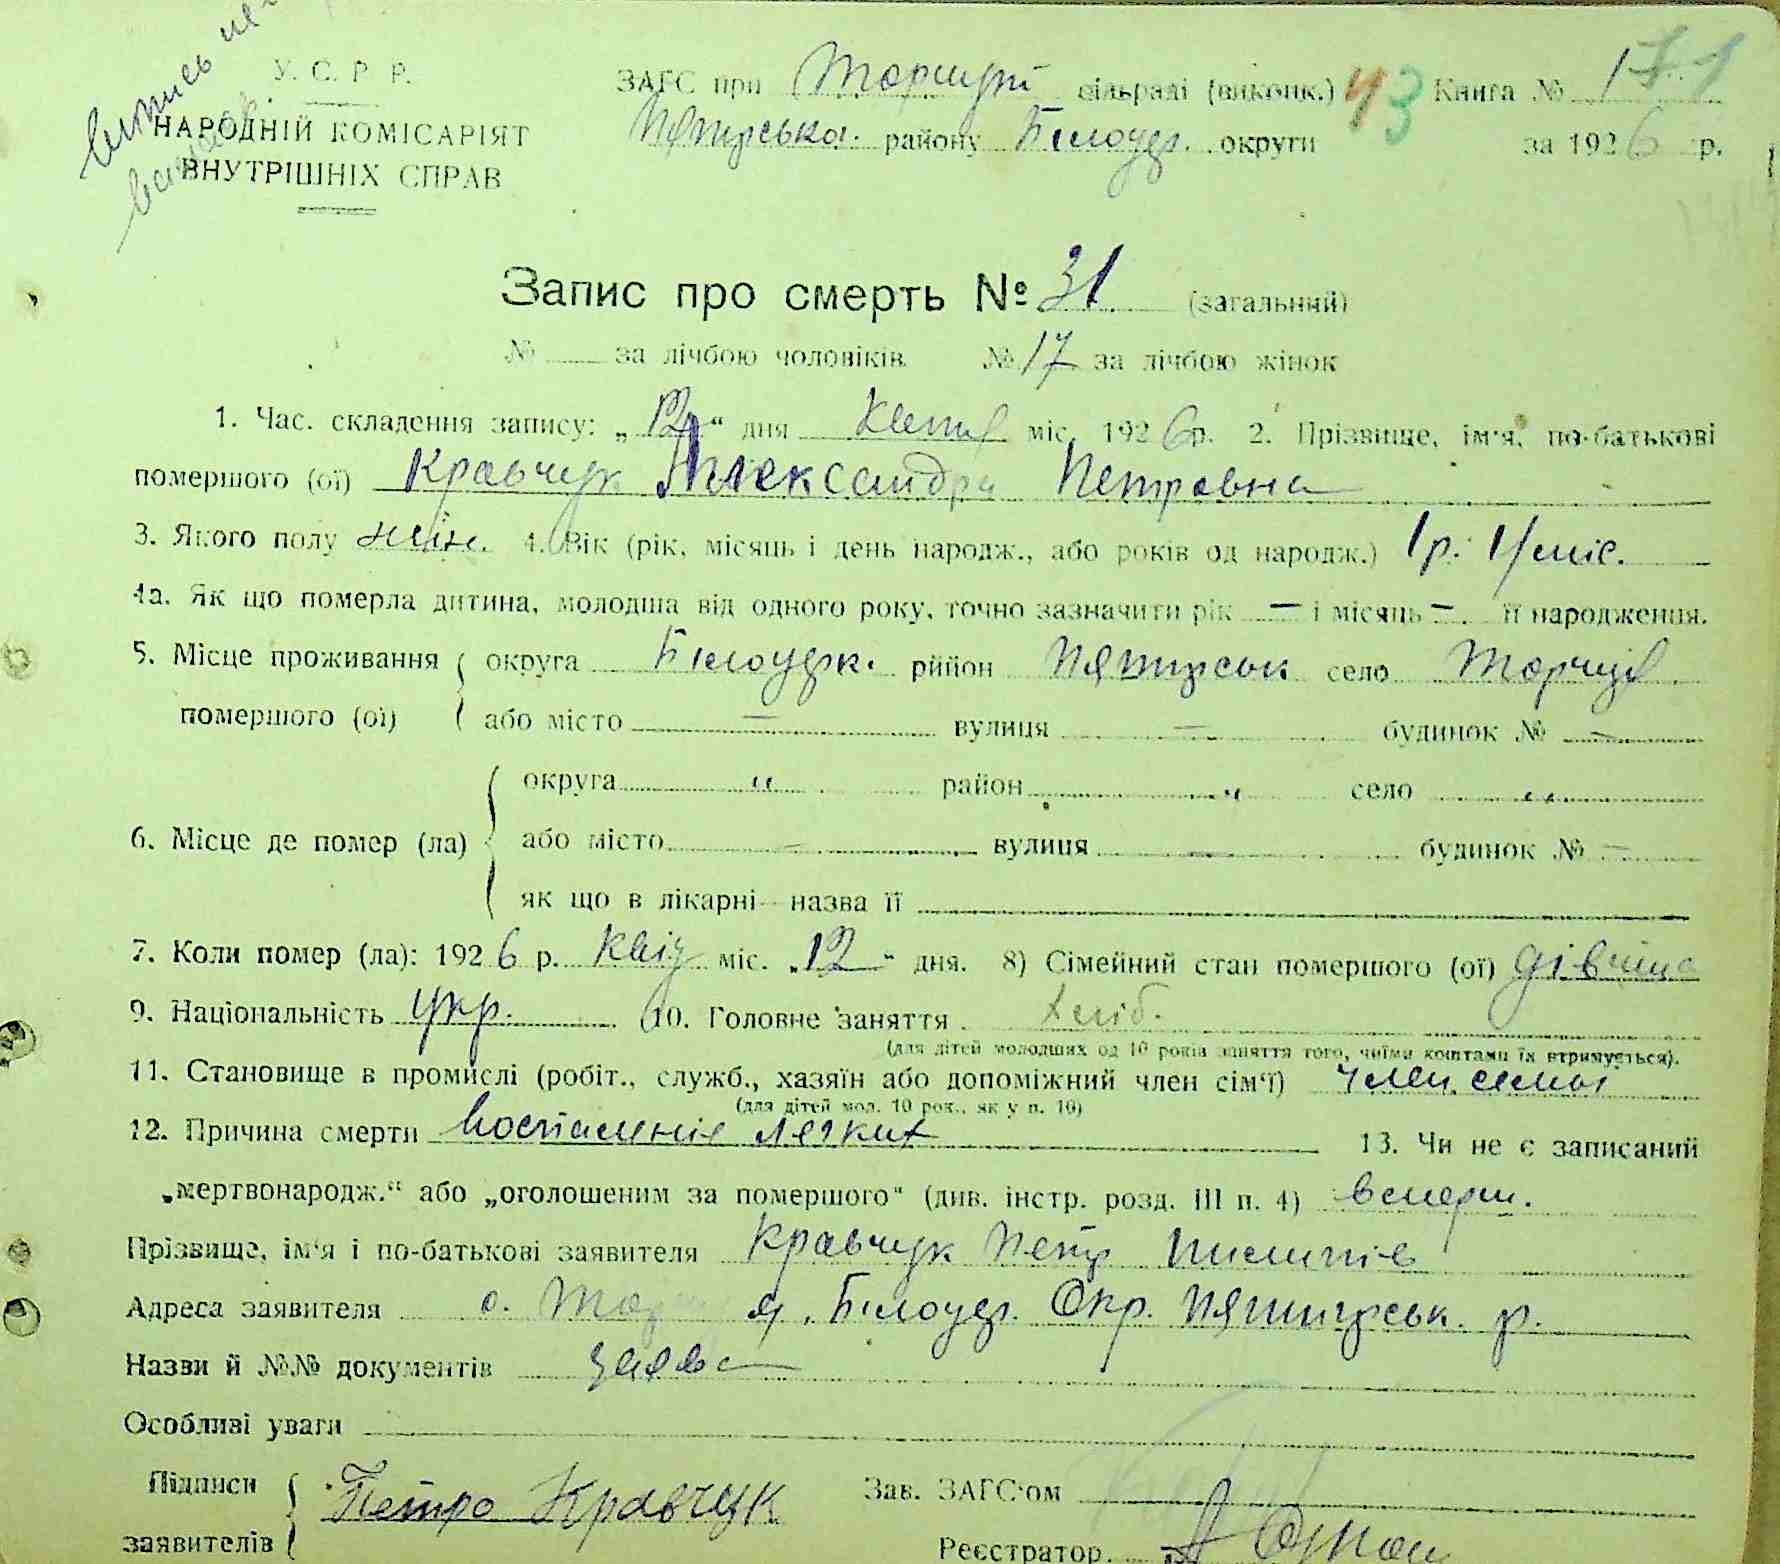 У. С. Р. Р.
НАРОДНІЙ КОМІСАРІЯТ
ВНУТРІШНІХ СПРАВ
випись
ЗАГС при сільраді (виконк.) 43 Книга № 1
району Білоцер. округи за 1926 р.
Запис про смерть № 31 (загальний)
№ за лічбою чоловіків. № 17 за лічбою жінок
1. Час. складення запису: „12“ дня міс. 1926 р. 2. Прізвище, ім'я, по-батькові
помершого (ої) Кравчук Александра Петровна
3. Якого полу жін. 4. Вік (рік, місяць і день народж., або років од народж.) 1 р. міс.
4а. Як що померла дитина, молодша від одного року, точно зазначити рік — і місяць —. її народження.
5. Місце проживання округа Білоцерк. рййон Пятигорськ село
помершого (ої) або місто — вулиця — будинок № —
округа „ район „ село „
6. Місце де помер (ла) або місто — вулиця — будинок № —
як що в лікарні — назва її
7. Коли помер (ла): 1926 р. Квіт міс. „12“ дня. 8) Сімейний стан помершого (ої) дівчина
9. Національність Укр. 10. Головне заняття хліб.
(для дітей молодших од 10 років заняття того, чиїми коштами їх втримується).
11. Становище в промислі (робіт., служб., хазяїн або допоміжний член сім'ї) член семьи
(для дітей мол. 10 рок., як у п. 10)
12. Причина смерти Воспаление легких 13. Чи не є записаний
„мертвонародж.“ або „оголошеним за помершого“ (див. інстр. розд. III п. 4) вмерш.
Прізвище, ім'я і по-батькові заявителя Кравчук Петр
Адреса заявителя с. Білоцер. Окр. Пятигорськ. р.
Назви й №№ документів заява
Особливі уваги
Підписи
заявителів Петро Кравчук
Зав. ЗАГС'ом
Реєстратор.